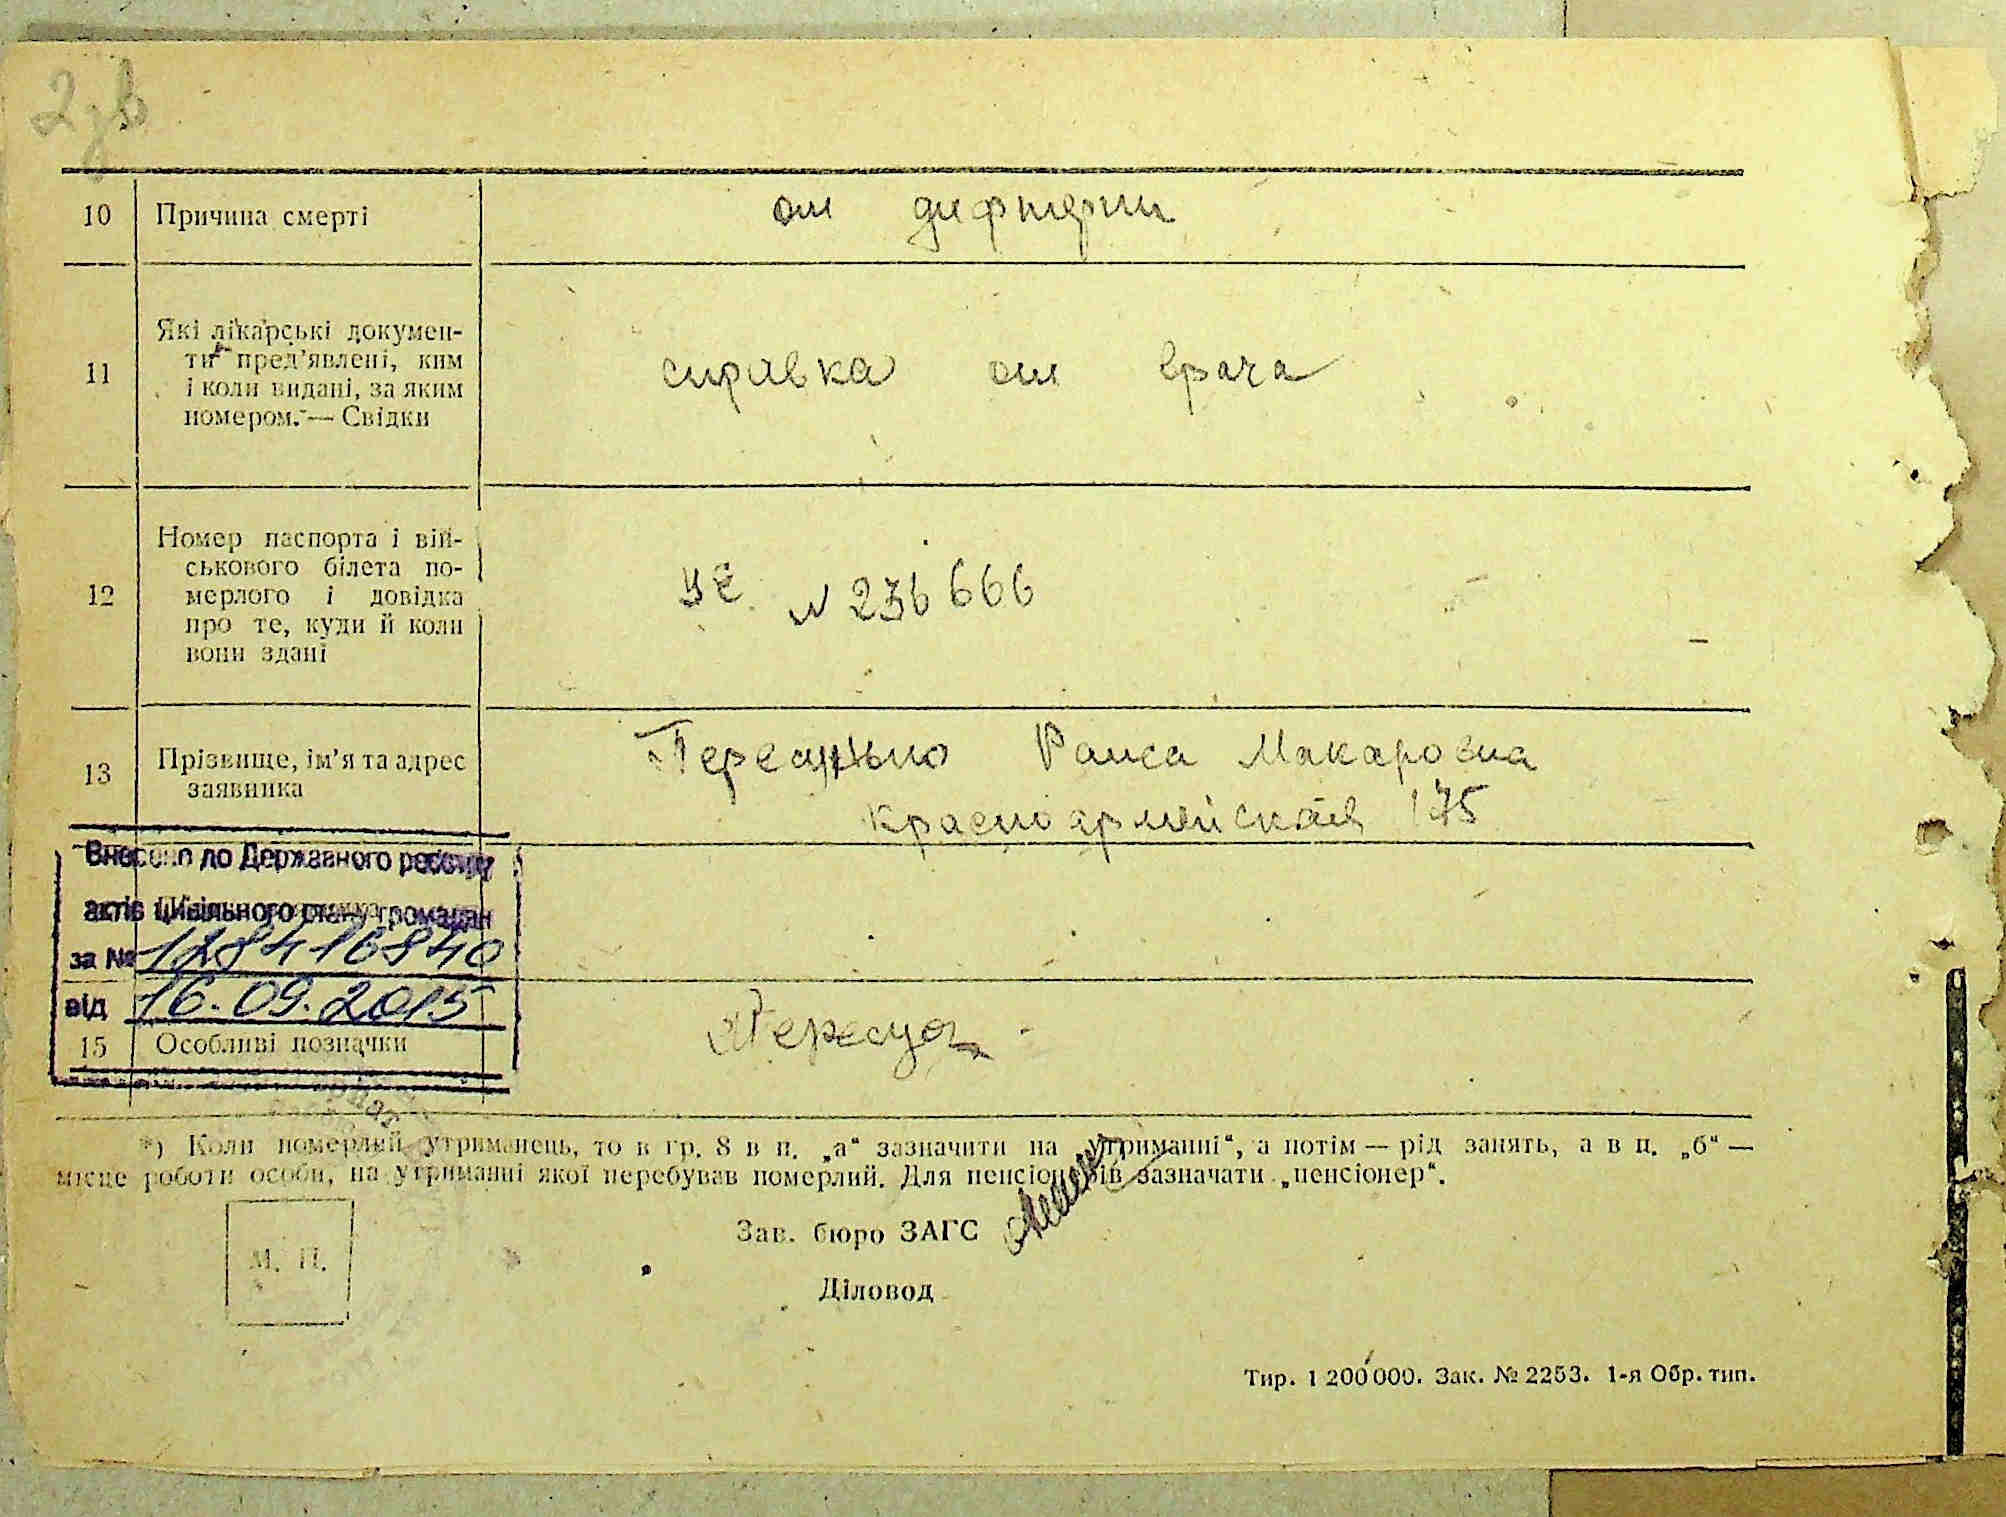 2 дв
10 Причина смерті от дифтерии
11 Які лікарські докумен-
ти пред’явлені, ким
і коли видані, за яким
номером. — Свідки
справка от врача
12 Номер паспорта і вій-
ськового білета по-
мерлого і довідка
про те, куди й коли
вони здані
№ 236666
13 Прізвище, ім’я та адрес
заявника
Раиса Макаровна
Красноармейская 175
Внесено до Державного реєстру
актів цивільного стану громадян
за № 128416840
від 16.09.2015
15 Особливі позначки
*) Коли померлий утриманець, то в гр. 8 в п. „а“ зазначити на „утриманні“, а потім — рід занять, а в п. „б“ —
місце роботи особи, на утриманні якої перебував померлий. Для пенсіонерів зазначати „пенсіонер“.
Зав. бюро ЗАГС
М. П.
Діловод
Тир. 1 200 000. Зак. № 2253. 1-я Обр. тип.